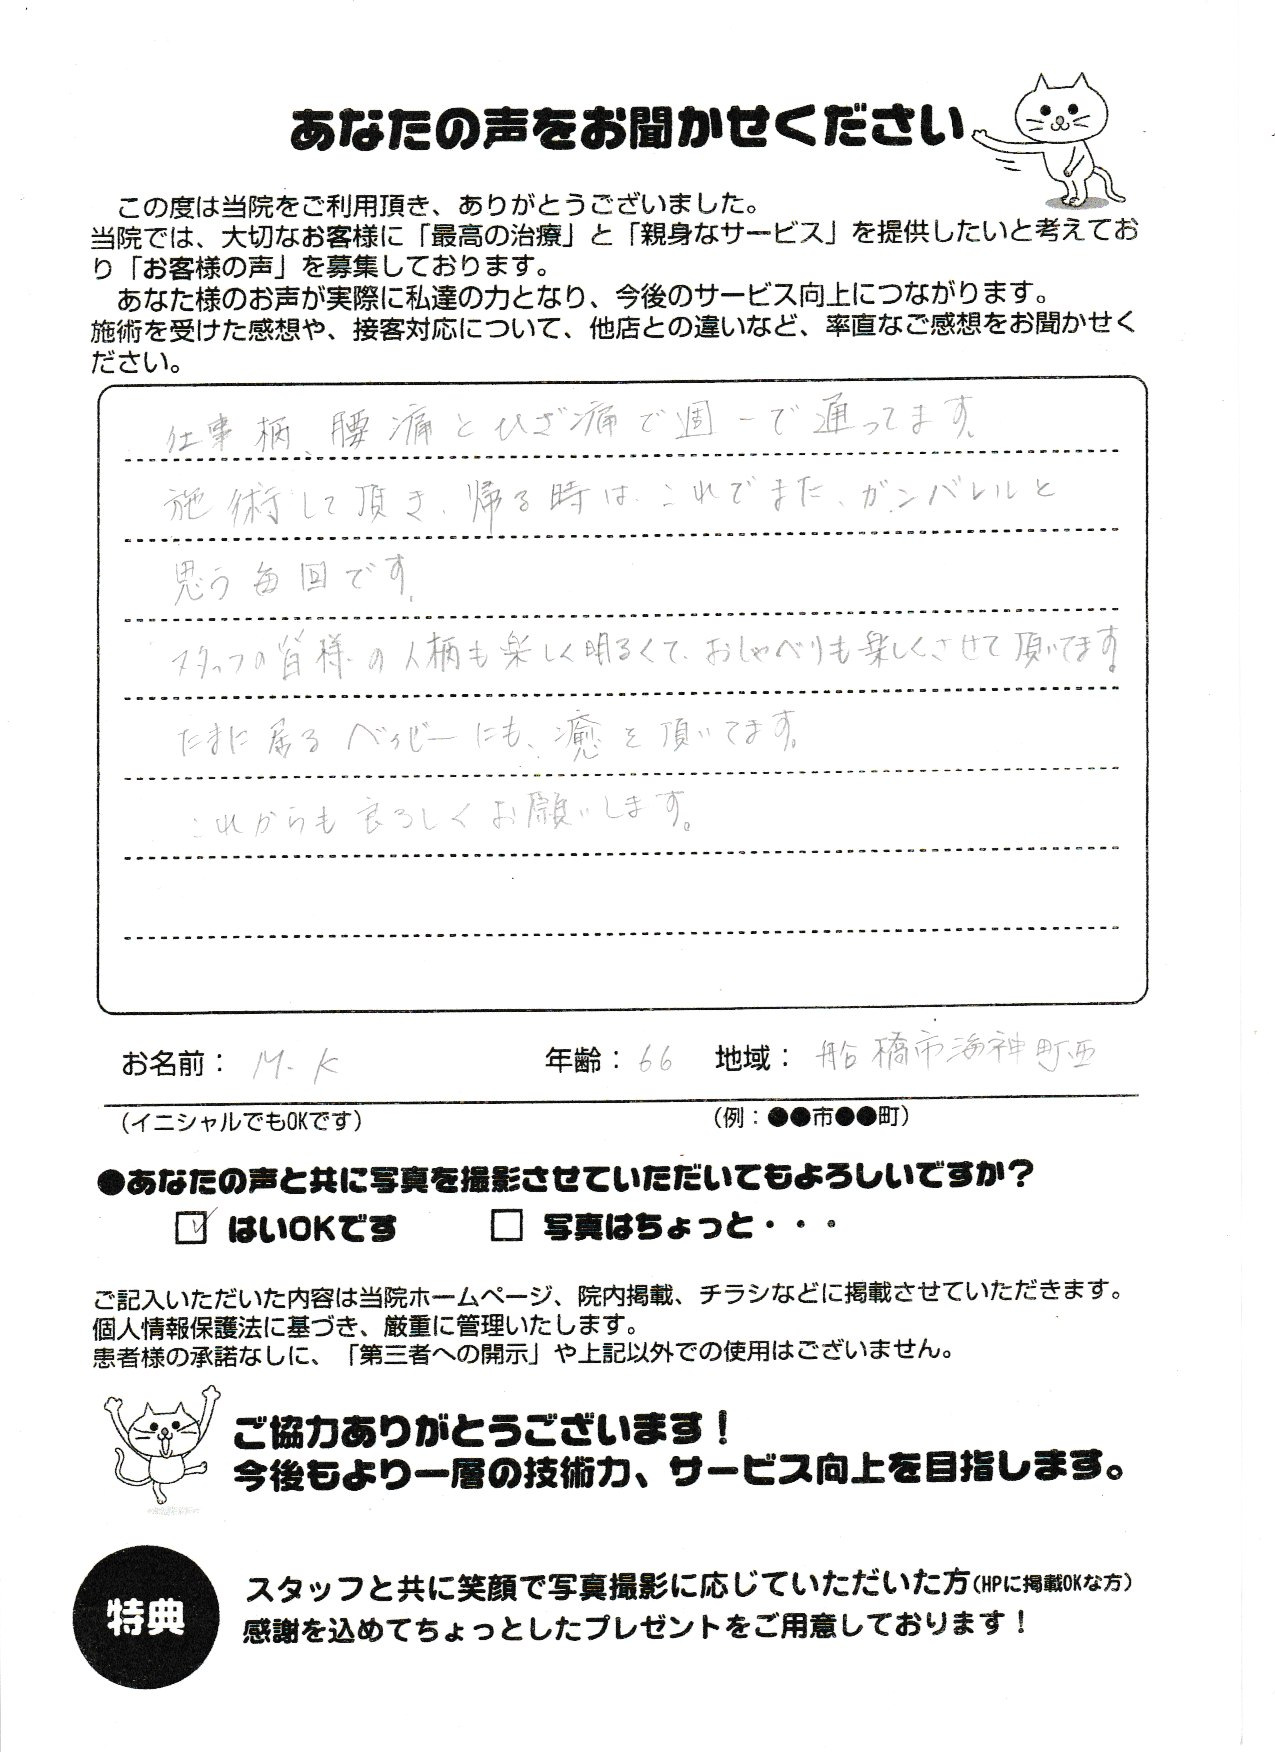 あなたの声をお聞かせください
この度は当院をご利用頂き、ありがとうございました。
当院では、大切なお客様に「最高の治療」と「親身なサービス」を提供したいと考えてお
り「お客様の声」を募集しております。
あなた様のお声が実際に私達の力となり、今後のサービス向上につながります。
施術を受けた感想や、接客対応について、他店との違いなど、率直なご感想をお聞かせく
ださい。
仕事柄、腰痛とひざ痛で週一で通ってます。
施術して頂き、帰る時は、これでまた、ガンバレルと
思う毎回です。
スタッフの皆様の人柄も楽しく明るくて、おしゃべりも楽しくさせて頂いてます。
たまに居るベイビーにも、癒を頂いてます。
これからも良ろしくお願いします。
お名前： M.K 年齢：66 地域： 船橋市海神町西
（イニシャルでもOKです） （例：●●市●●町）
●あなたの声と共に写真を撮影させていただいてもよろしいですか？
☑ はいOKです □ 写真はちょっと・・・
ご記入いただいた内容は当院ホームページ、院内掲載、チラシなどに掲載させていただきます。
個人情報保護法に基づき、厳重に管理いたします。
患者様の承諾なしに、「第三者への開示」や上記以外での使用はございません。
ご協力ありがとうございます！
今後もより一層の技術力、サービス向上を目指します。
特典
スタッフと共に笑顔で写真撮影に応じていただいた方（HPに掲載OKな方）
感謝を込めてちょっとしたプレゼントをご用意しております！